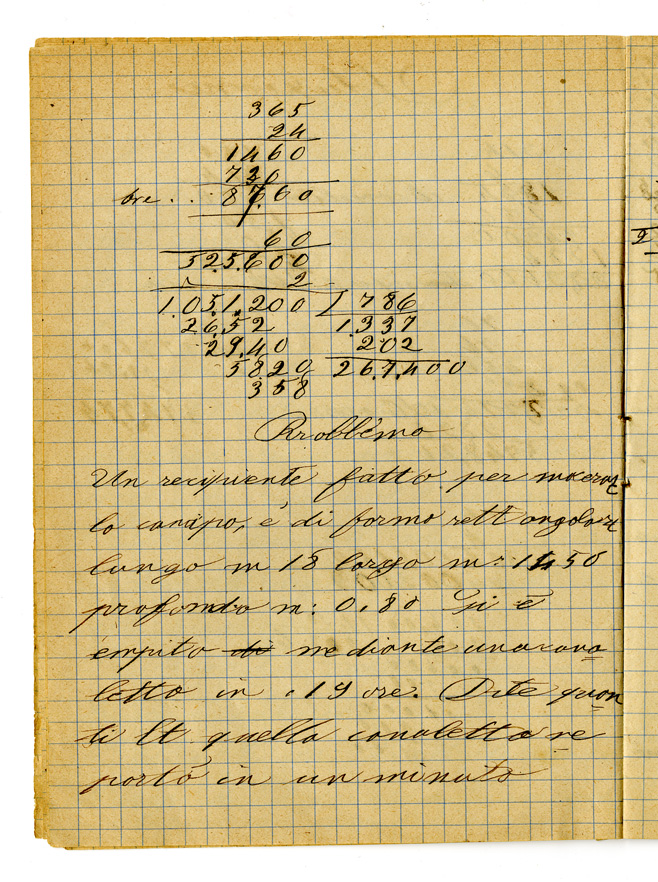 365
24
1460
730
ore . . 8760
60
525.600
2
1.051.200 786
2652 1.337
29.40 202
5820 267.400
358
Problemo
Un recipiente fatto per macerar
la canapa, è di forma rettangolare
lungo m 18 largo m: 1450
profondo m: 0.80 Si è
empito di mediante una cana
letta in 19 ore. Dite quan
ti lt quella canaletta ne
portò in un minuto
2